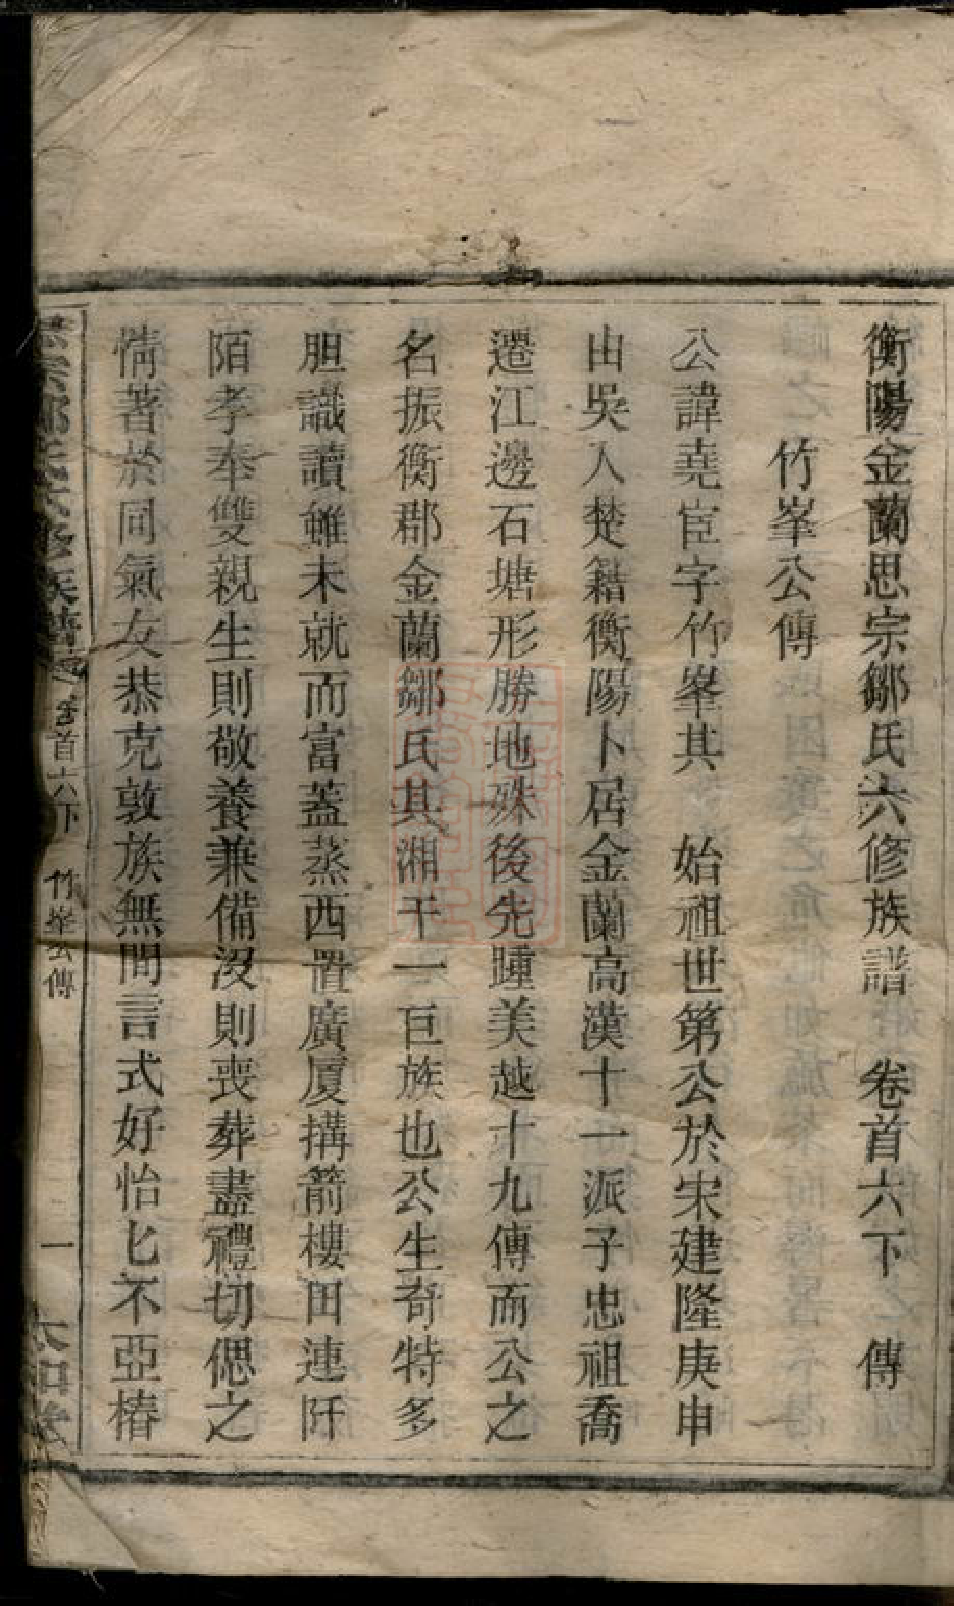 衡陽金蘭思宗鄒氏六修族譜　卷首六下　傳
竹峯公傳
公諱堯宦字竹峯其　始祖世第公於宋建隆庚申
由吳入楚籍衡陽卜居金蘭高漢十一派子忠祖喬
遷江邊石塘形勝地殊後先踵美越十九傳而公之
名振衡郡金蘭鄒氏其湘干一巨族也公生奇特多
胆識讀雖未就而富蓋蒸西置廣厦搆箭樓田連阡
陌孝奉雙親生則敬養兼備沒則喪葬盡禮切偲之
情著於同氣友恭克敦族無間言式好怡匕不亞椿
思宗鄒氏六修族譜　卷首六下　竹峯公傳　一　太和堂